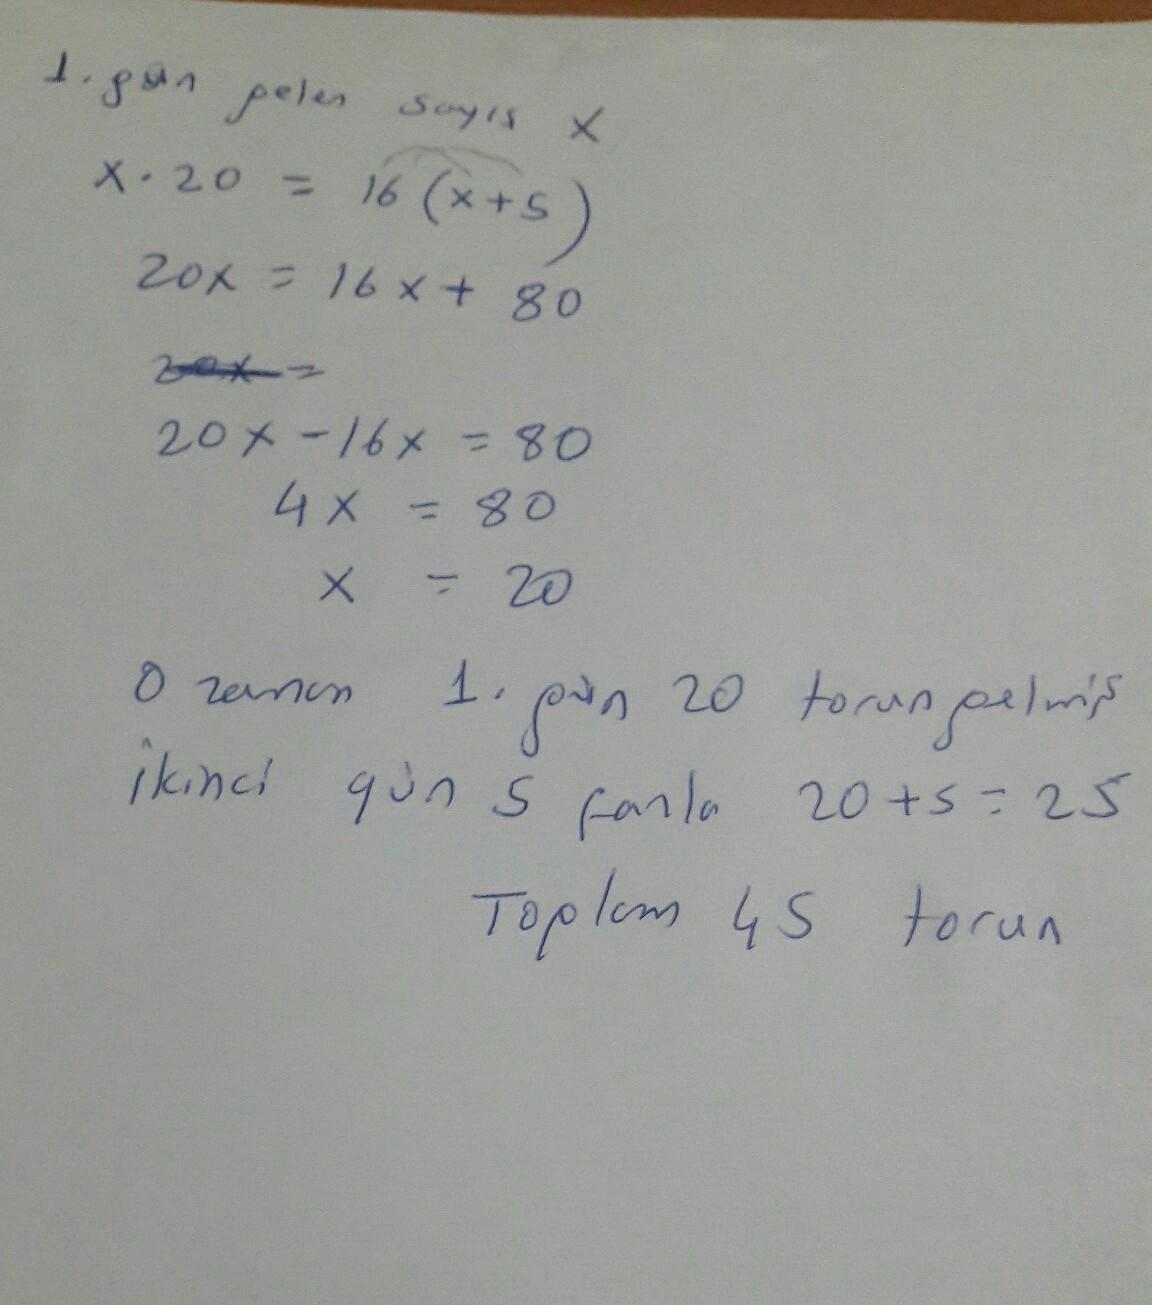 1. gün gelen sayısı x
x·20 = 16(x+5)
20x = 16x + 80
20x =
20x - 16x = 80
4x = 80
x = 20
O zaman 1. gün 20 torun gelmiş
ikinci gün 5 fazla 20+5=25
Toplam 45 torun